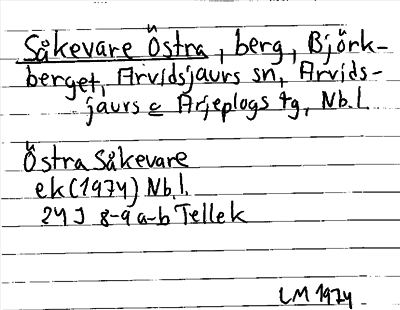 Såkevare Östra, berg, Björk-
berget, Arvidsjaurs sn, Arvids-
jaurs o Arjeplogs tg, Nb.l.
Östra Såkevare
ek (1974) Nb.l.
24J 8-9 a-b Tellek
LM 1974